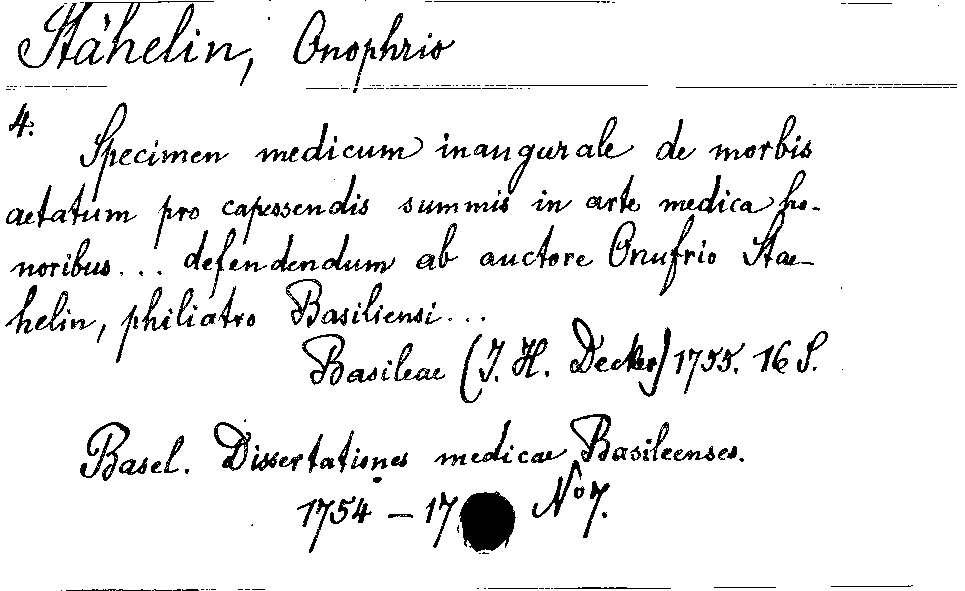 Stähelin, Onophrio
4.
Specimen medicum inaugurale de morbis
aetatum pro capessendis summis in arte medica ho-
noribus... defendendum ab auctore Onufrio Stae-
helin, philiatro Basiliensi...
Basileae (J. H. Decker) 1755. 16 S.
Basel. Dissertationes medicae Basileenses.
1754 - 17 No 7.